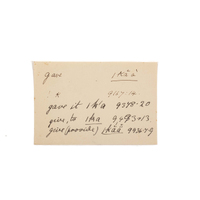 gave ika'a'
x 9167-14
gave it ik'a 9378-20
give, to ika 9493+13
give (provide) ikáá 9936-9